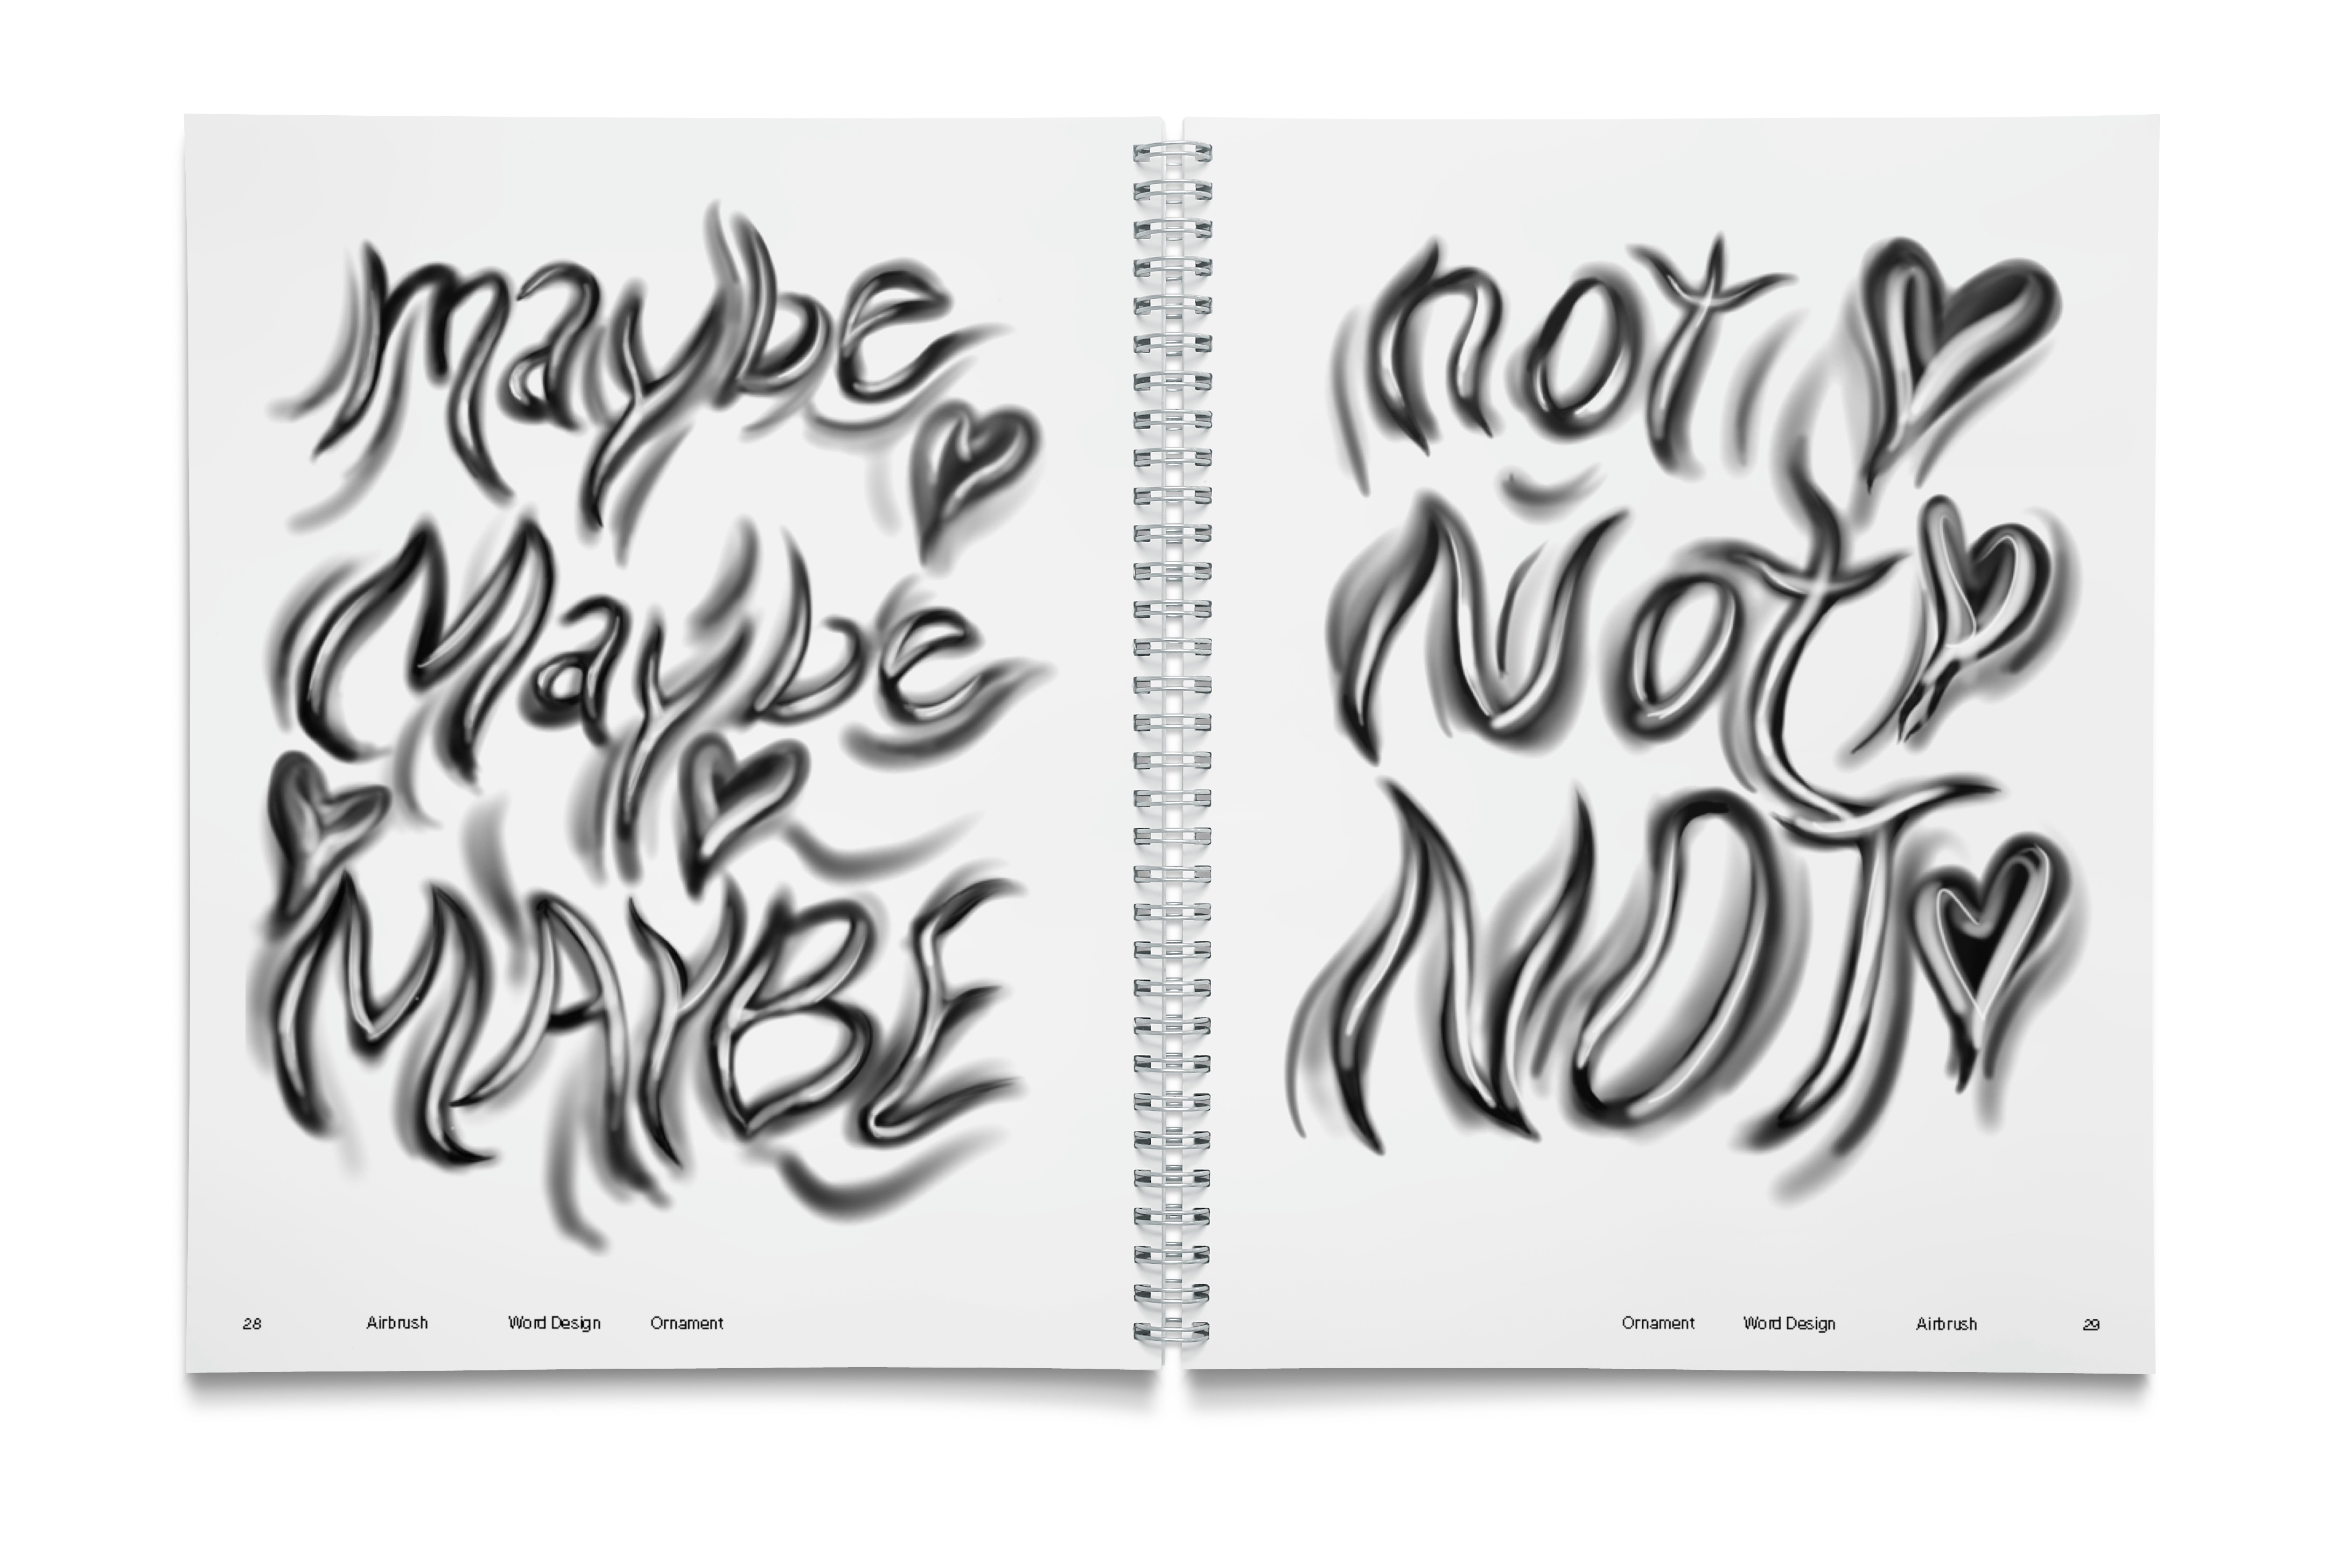 maybe
Maybe
MAYBE
28 Airbrush Word Design Ornament
not
Not
NOT
Ornament Word Design Airbrush 29